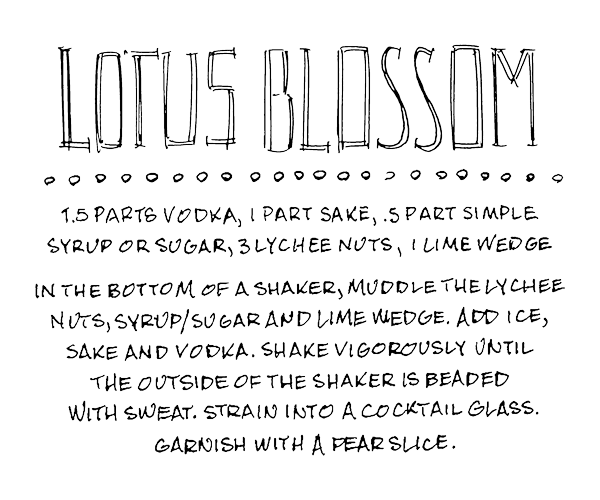 LOTUS BLOSSOM
1.5 PARTS VODKA, 1 PART SAKE, .5 PART SIMPLE
SYRUP OR SUGAR, 3 LYCHEE NUTS, 1 LIME WEDGE
IN THE BOTTOM OF A SHAKER, MUDDLE THE LYCHEE
NUTS, SYRUP/SUGAR AND LIME WEDGE. ADD ICE,
SAKE AND VODKA. SHAKE VIGOROUSLY UNTIL
THE OUTSIDE OF THE SHAKER IS BEADED
WITH SWEAT. STRAIN INTO A COCKTAIL GLASS.
GARNISH WITH A PEAR SLICE.